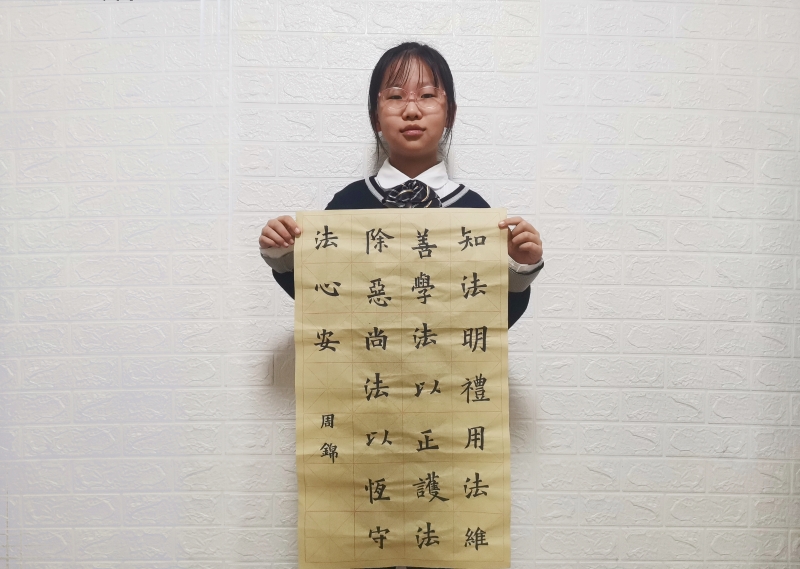 知法明禮用法維
善學法以正護法
除惡尚法以恆守
法心安
周錦